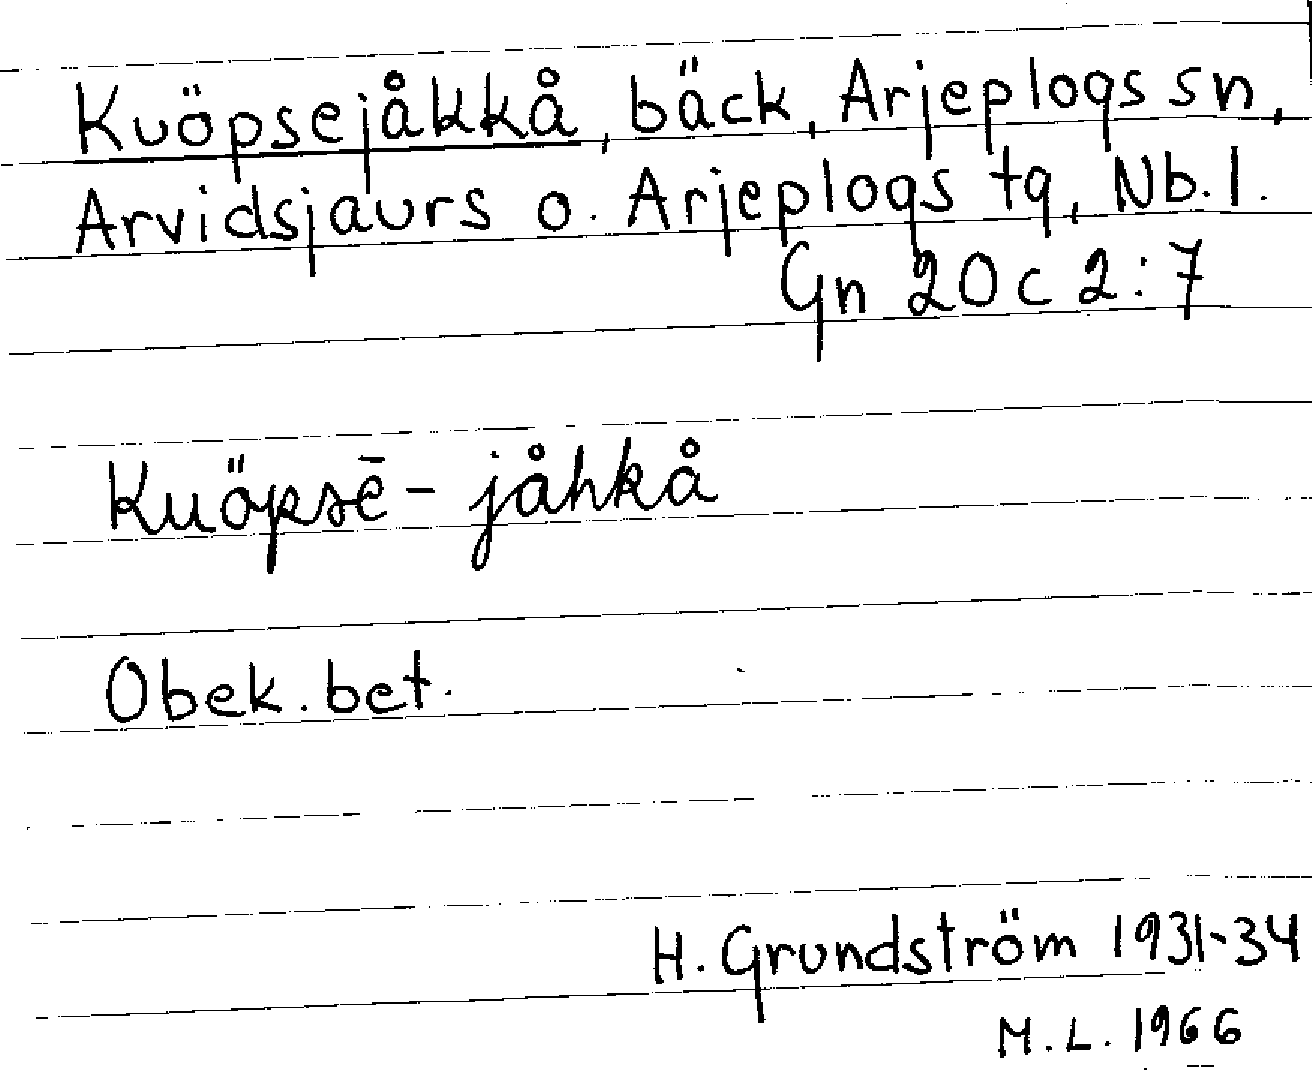 Kuöpsejåkkå, bäck, Arjeplogs sn,
Arvidsjaurs o. Arjeplogs tg, Nb.l.
Gn 20c 2:7
Kuöpsē-jåhkå
Obek. bet.
H. Grundström 1931-34
M.L. 1966